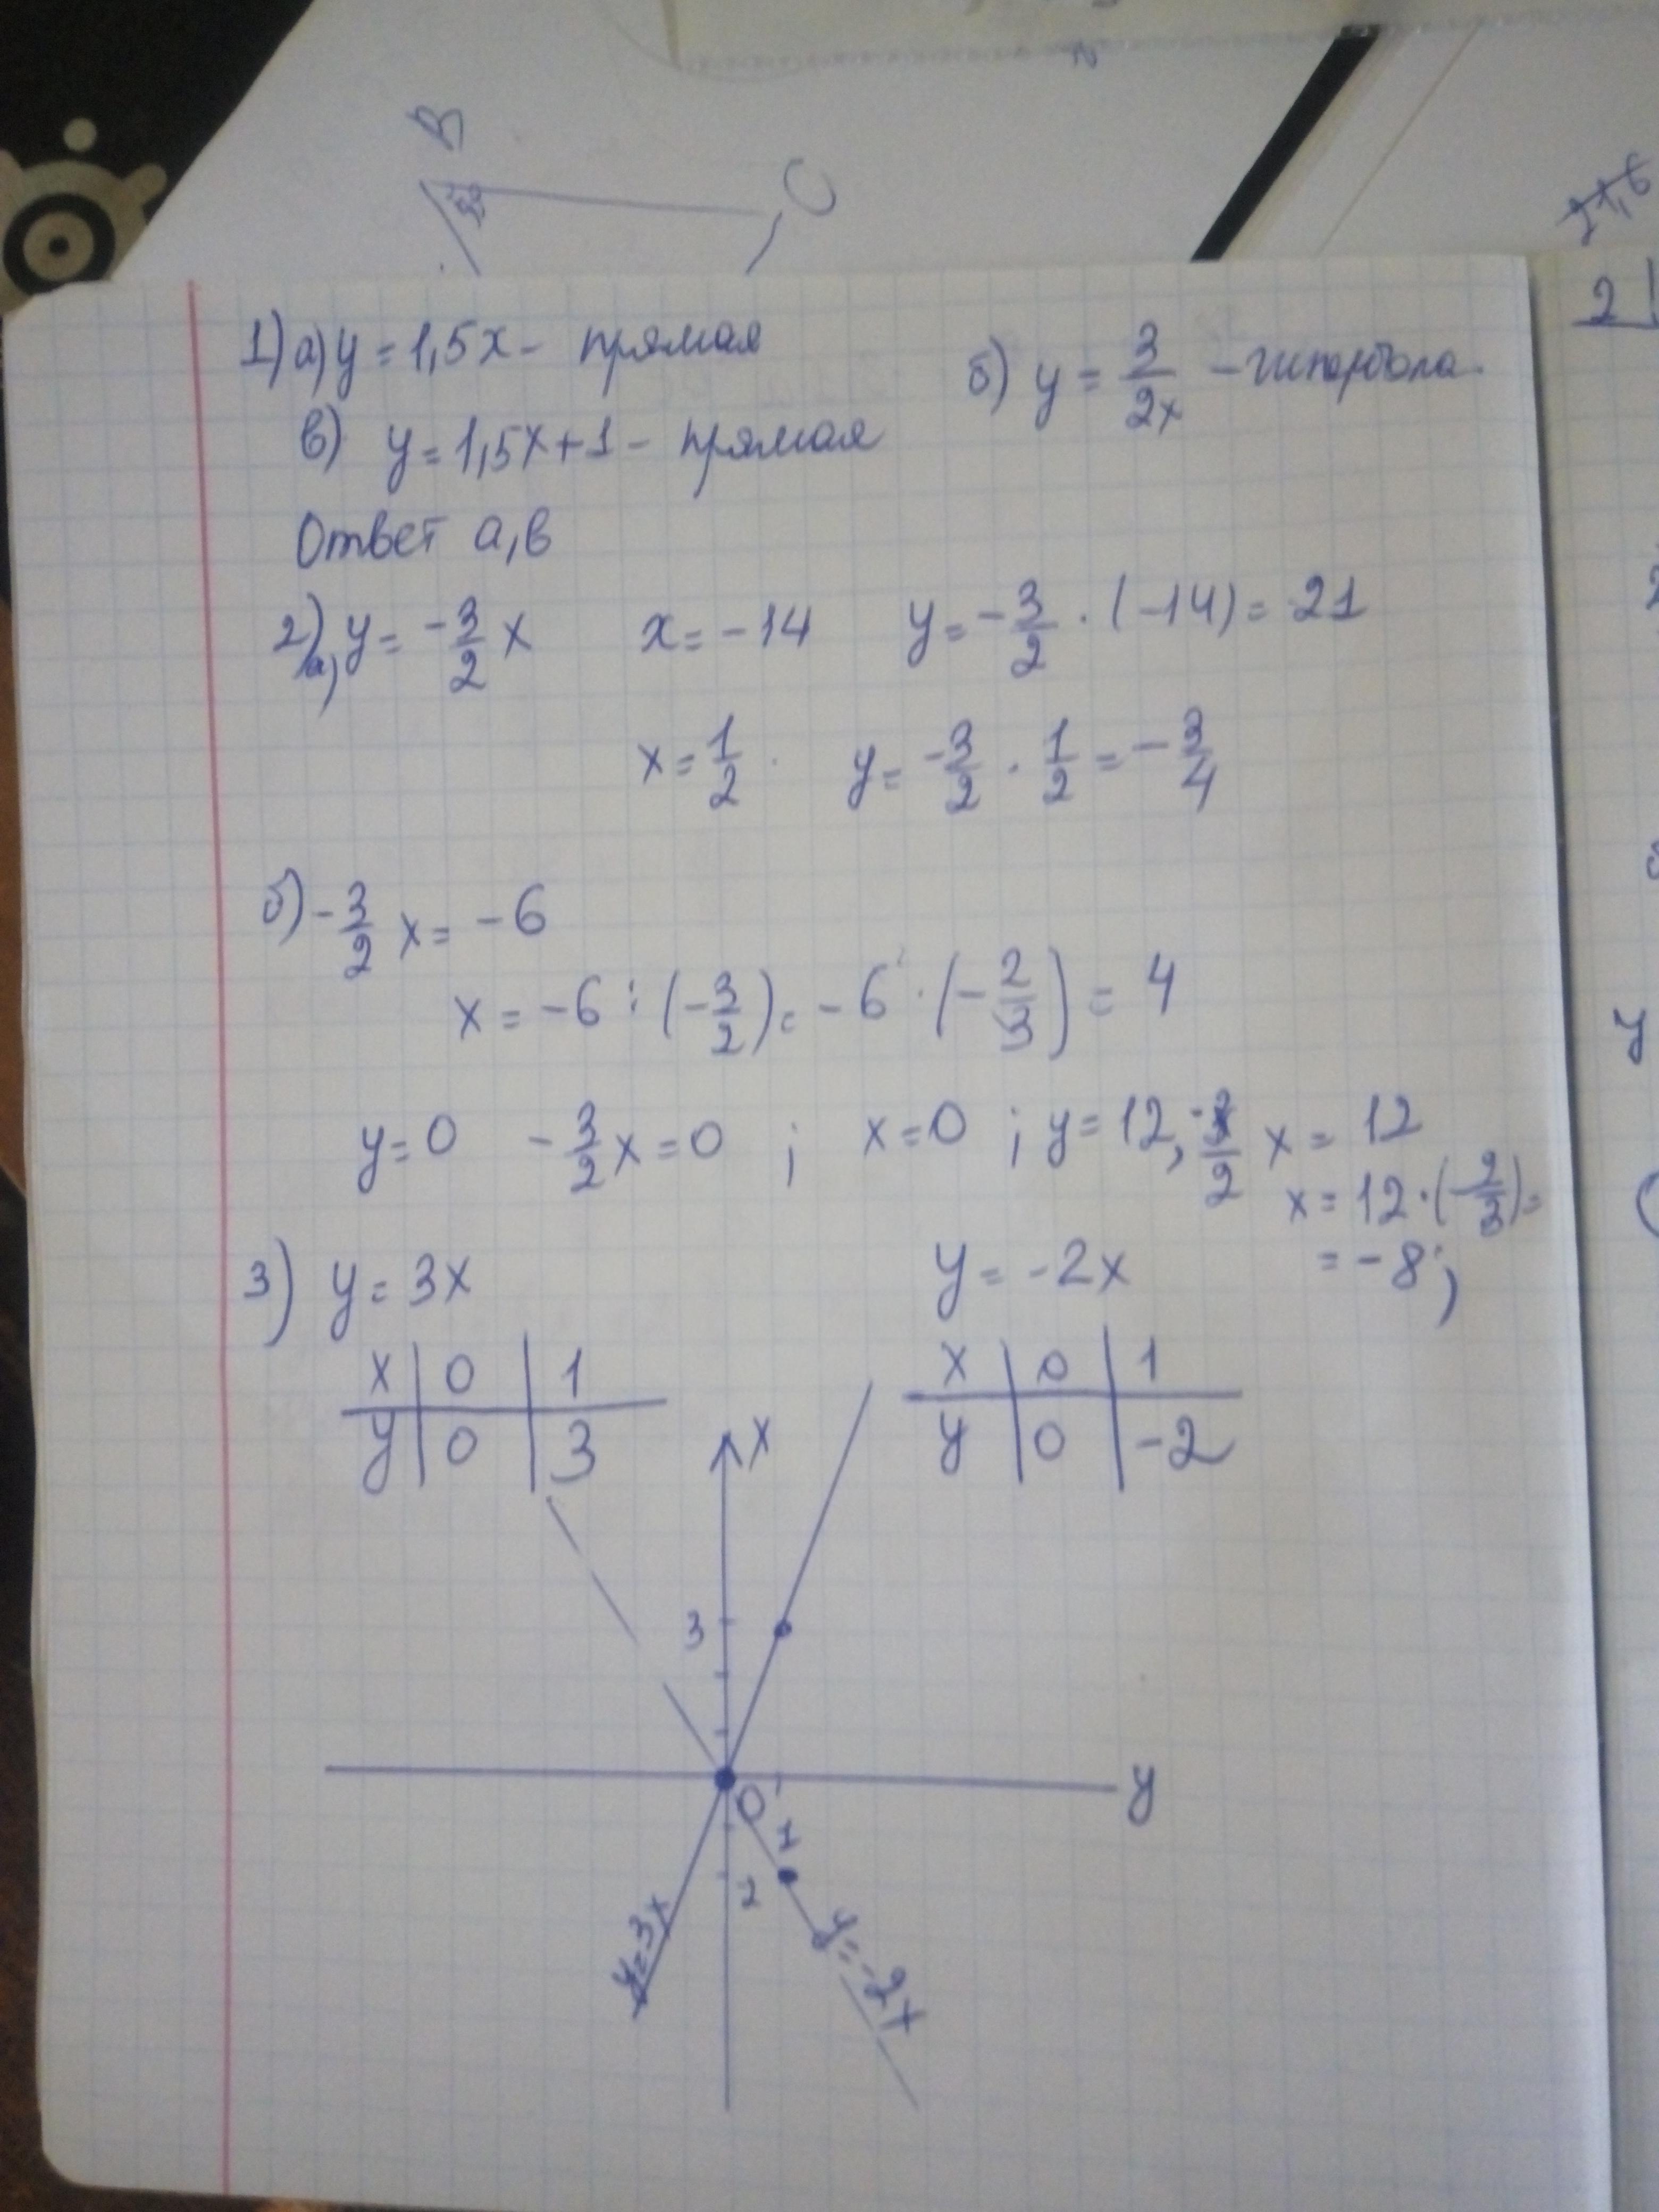 В
С
21,6
2
1) а) y = 1,5x - прямая
б) y = 3/2x - гипербола
в) y = 1,5x + 1 - прямая
Ответ а, в
2) а) y = -3/2 x x = -14 y = -3/2 · (-14) = 21
x = 1/2 y = -3/2 · 1/2 = -3/4
б) -3/2 x = -6
x = -6 : (-3/2) = -6 · (-2/3) = 4
y = 0 -3/2 x = 0 ; x = 0 ; y = 12, -3/2 x = 12
x = 12 · (-2/3) =
= -8 ;
3) y = 3x y = -2x
x 0 1
y 0 3
x 0 1
y 0 -2
x
3
y
0
1
2
y = 3x
y = -2x
y